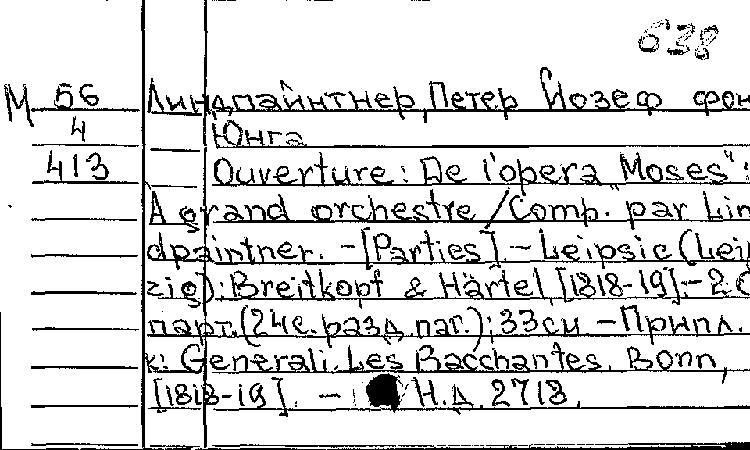 638
М 56 Линдпайнтнер, Петер Йозеф фон
4 Юнга
413 Ouverture: De l'opera "Moses":
A grand orchestre / Comp. par Lin
dpaintner. - [Parties]. - Leipsic (Leip
zig): Breitkopf & Härtel, [1818-19]. - 2.
парт. (24с. разд. паг.); 33см - Припл.
к: Generali. Les Bacchantes. Bonn,
[1818-19]. - Н.д. 2713.